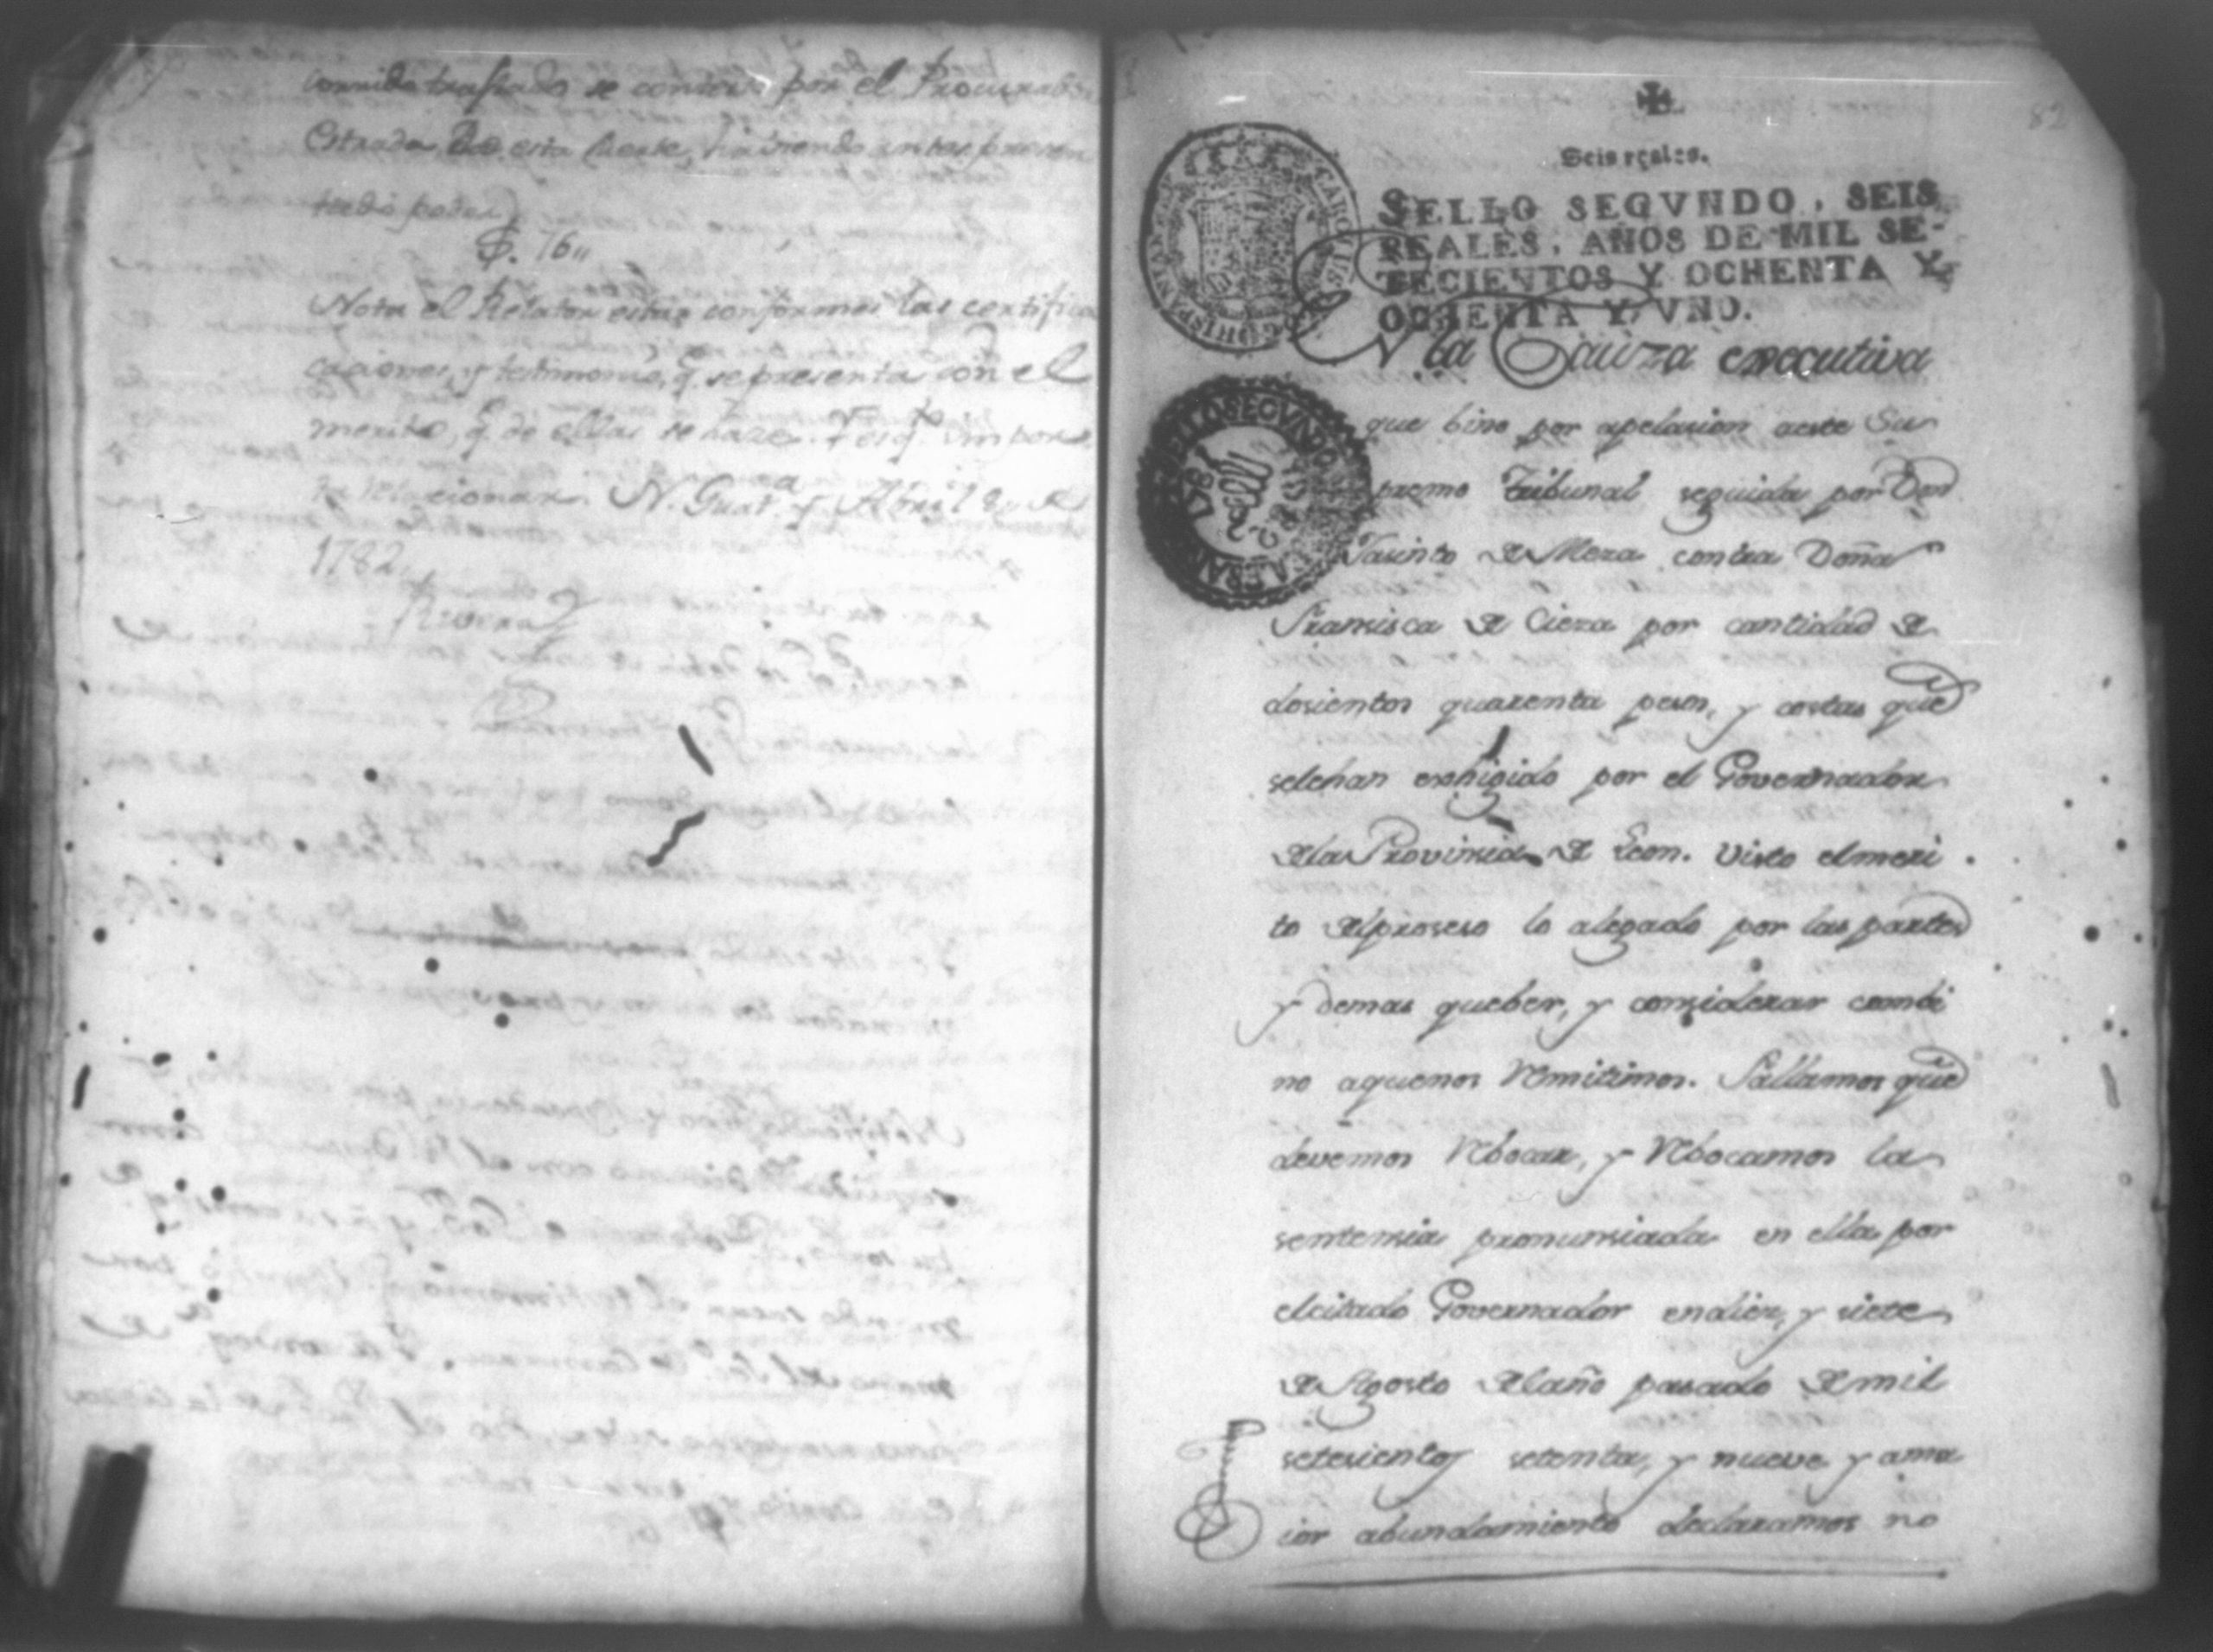 corrido traslado se contextó por el Procurador
Estrada esta fuente, haviendo antes presen
tado poder
§. 16,,
Nota el Relator estàr conformes las certifica
caciones, y testimonio, q̃. se presenta con el
merito, q̃. de ellas se haze. Y es q.to impor
ta relacionar. N. Guat.a y Abril 8,, de
1782,,
Rivera
82
Seis reales.
SELLO SEGVNDO, SEIS
REALES, AÑOS DE MIL SE-
TECIENTOS Y OCHENTA Y
OCHENTA Y VNO.
En la Cauza executiva
que bino por apelasion aeste Su
premo Tribunal seguida por Don
Jacinto de Meza contra Doña
Fransisca de Cieza por cantidad de
dosientos quarenta pesos, y costas que
selehan exhigido por el Governador
dela Provinsia de Leon. Visto elmeri
to delproseso lo alegado por las partes
y demas queber, y considerar combi
no aquenos Remitimos. Fallamos que
devemos Rebocar, y Rebocamos la
sentensia pronunsiada en ella por
elcitado Governador endiez, y siete
de Agosto delaño pasado de mil
setesientos setenta, y nueve y ama
ior abundamiento declaramos no